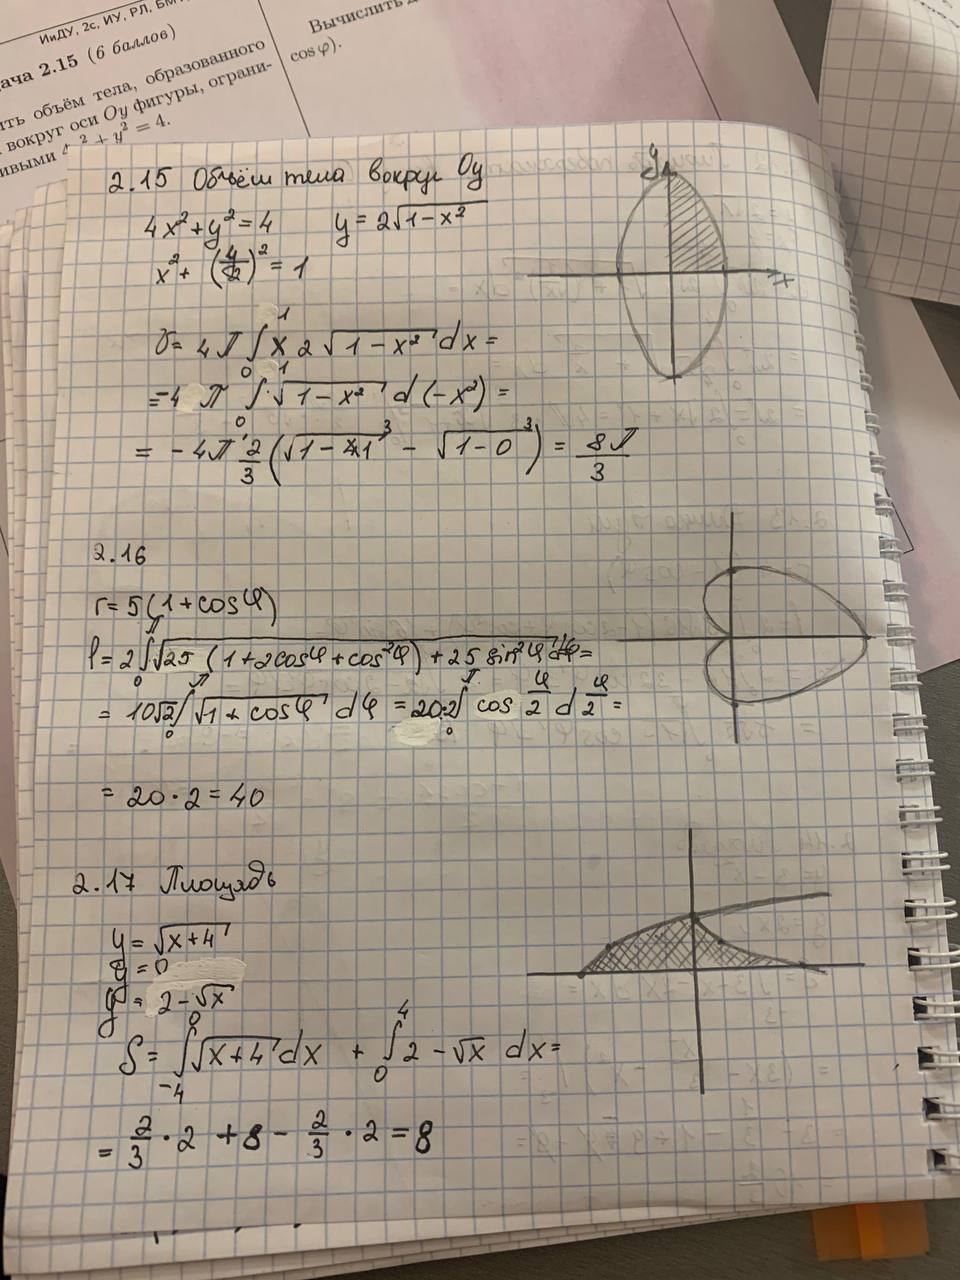 ИиДУ, 2с, ИУ, РЛ, БМ
ача 2.15 (6 баллов)
ть объём тела, образованного
вокруг оси Oy фигуры, ограни-
ивыми 4 ² + y² = 4.
Вычислить
cos φ).
2.15 Объём тела вокруг Oy
4x² + y² = 4 y = 2√(1-x²)
x² + (y/2)² = 1
y
x
V = 4π ∫₀¹ x 2 √(1-x²) dx =
= -4 π ∫₀¹ √(1-x²) d(-x²) =
= -4π 2/3 (√(1-1)³ - √(1-0)³) = 8π/3
2.16
r = 5(1+cosφ)
l = 2 ∫₀^π √(25 (1+2cosφ+cos²φ) + 25 sin²φ) dφ =
= 10√2 ∫₀^π √(1+cosφ) dφ = 20·2 ∫₀^π cos φ/2 d φ/2 =
= 20 · 2 = 40
2.17 Площадь
y = √(x+4)
y = 0
y = 2-√x
S = ∫₋₄⁰ √(x+4) dx + ∫₀⁴ 2 - √x dx =
= 2/3 · 2 + 8 - 2/3 · 2 = 8